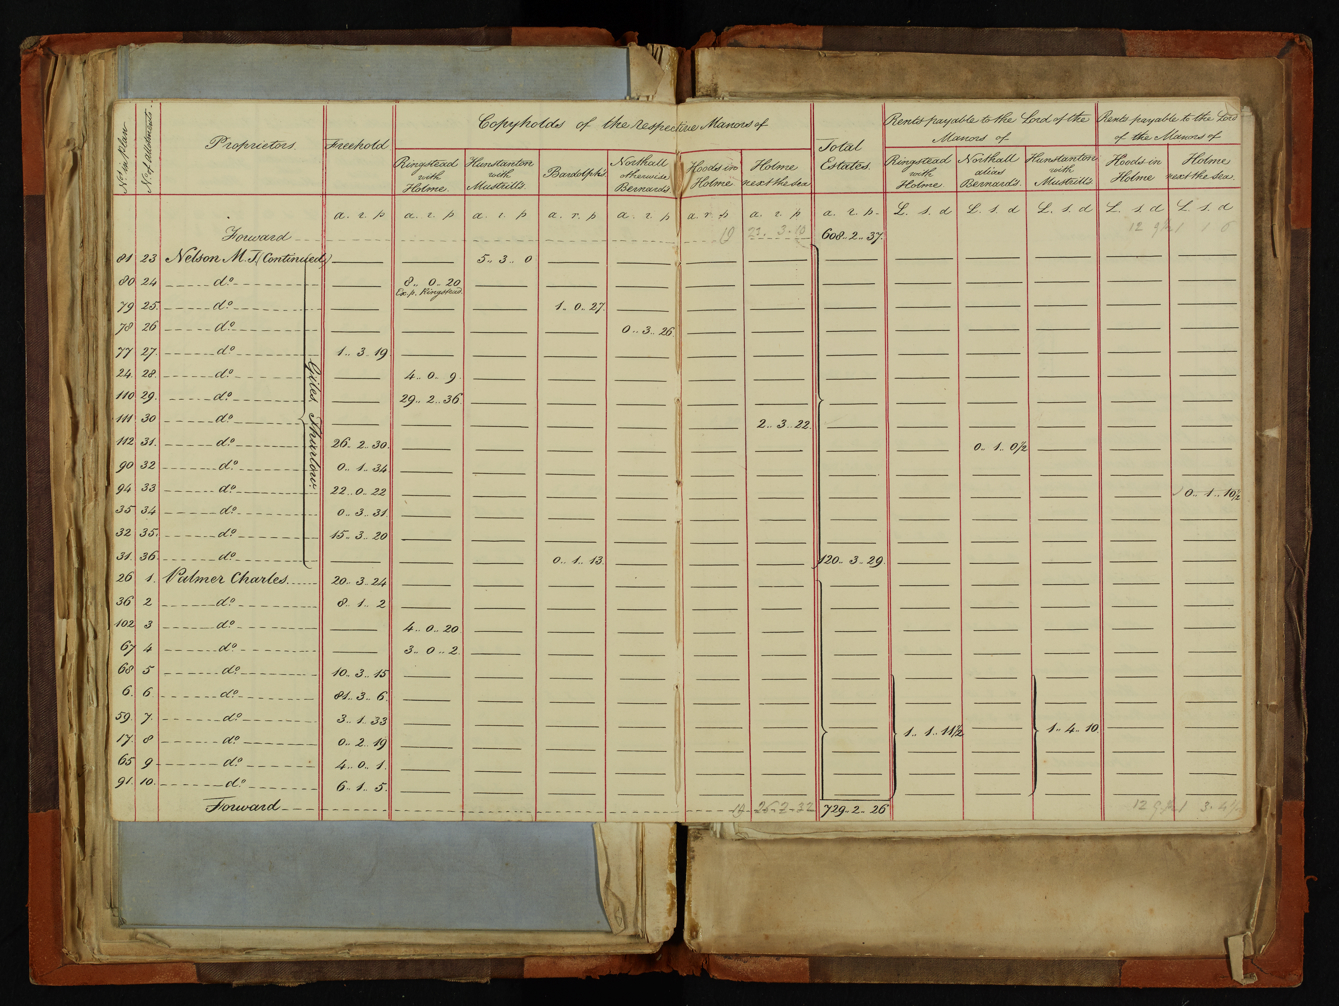 Nos. in Plan
No. of allotments
Proprietors.
Freehold
Copyholds of the respective Manors of
Ringstead with Holme.
Hunstanton with Mustrills.
Bardolphs.
Northall otherwise Bernards.
Hoods in Holme
Holme next the sea
Total Estates.
Rents payable to the Lord of the Manors of
Ringstead with Holme.
Northall alias Bernards.
Hunstanton with Mustrills.
Rents payable to the Lord of the Manors of
Hoods in Holme
Holme next the sea.
a. r. p a. r. p a. r. p a. r. p a. r. p a r p a. r. p a. r. p. L. s. d L. s. d L. s. d L. s. d L. s. d
Forward 19 22.. 3.. 10 608.. 2.. 37.
81 23 Nelson M. J. (Continued) 5.. 3.. 0
80 24 do. 8.. 0.. 20
Ex. p. Ringstead.
79 25. do. 1.. 0.. 27.
78 26 do. 0.. 3.. 26
77 27. do. 1.. 3.. 19
24 28. do. 4.. 0.. 9.
110 29. do. 29.. 2.. 36
111 30 do. 2.. 3.. 22.
112 31. do. 26.. 2.. 30. 0.. 1.. 0½
90 32 do. 0.. 1.. 34
94 33 do. 22.. 0.. 22 0.. 1.. 10½
35 34 do. 0.. 3.. 31
32 35. do. 15.. 3.. 20
31 36 do. 0.. 1.. 13. 120.. 3.. 29.
Giles Tharlow.
26 1. Palmer Charles 20.. 3.. 24
36 2 do. 8.. 1.. 2
102 3 do. 4.. 0.. 20
67 4 do. 3.. 0.. 2.
68 5 do. 10.. 3.. 15
6. 6 do. 81.. 3.. 6.
59 7. do. 3.. 1.. 33 1.. 1.. 11½ 1.. 4.. 10.
17 8 do. 0.. 2.. 19
65 9 do. 4.. 0.. 1.
91. 10. do. 6.. 1.. 5.
Forward 19 25.. 2.. 32 729.. 2.. 26